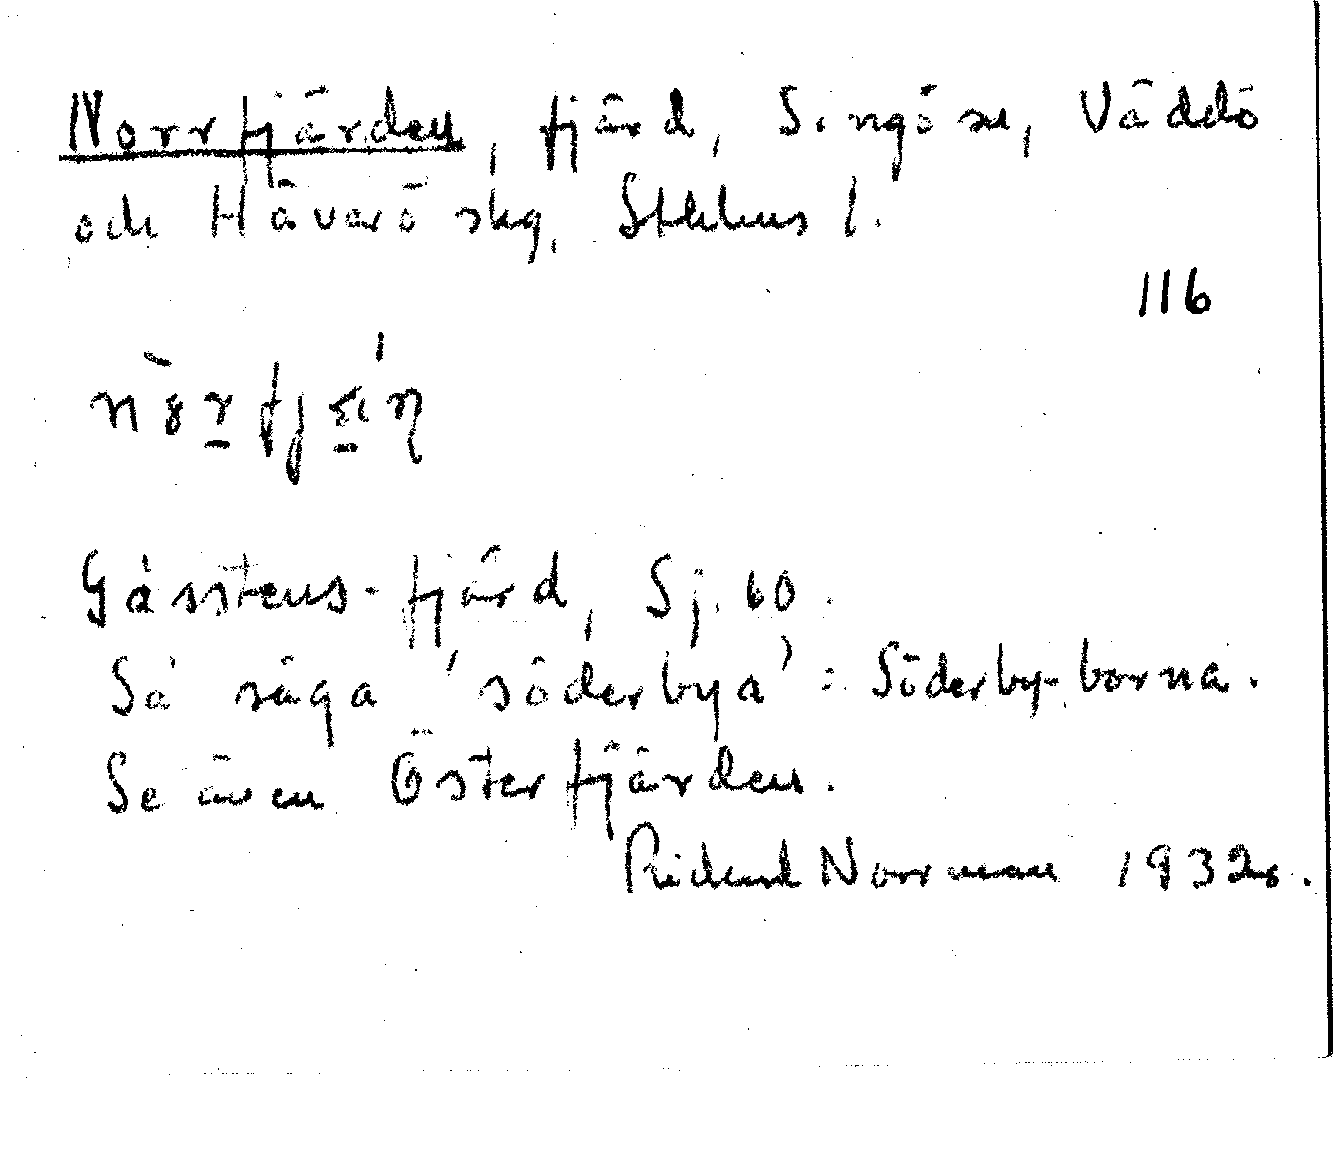 Norrfjärden, fjärd, Singö sn, Väddö
och Häverö skg, Sthlms l.
116
Gåsstens-fjärd, Sj. 60.
Så säga 'söderbya': Söderby-borna.
Se även Österfjärden.
Rickard Norrman 1932